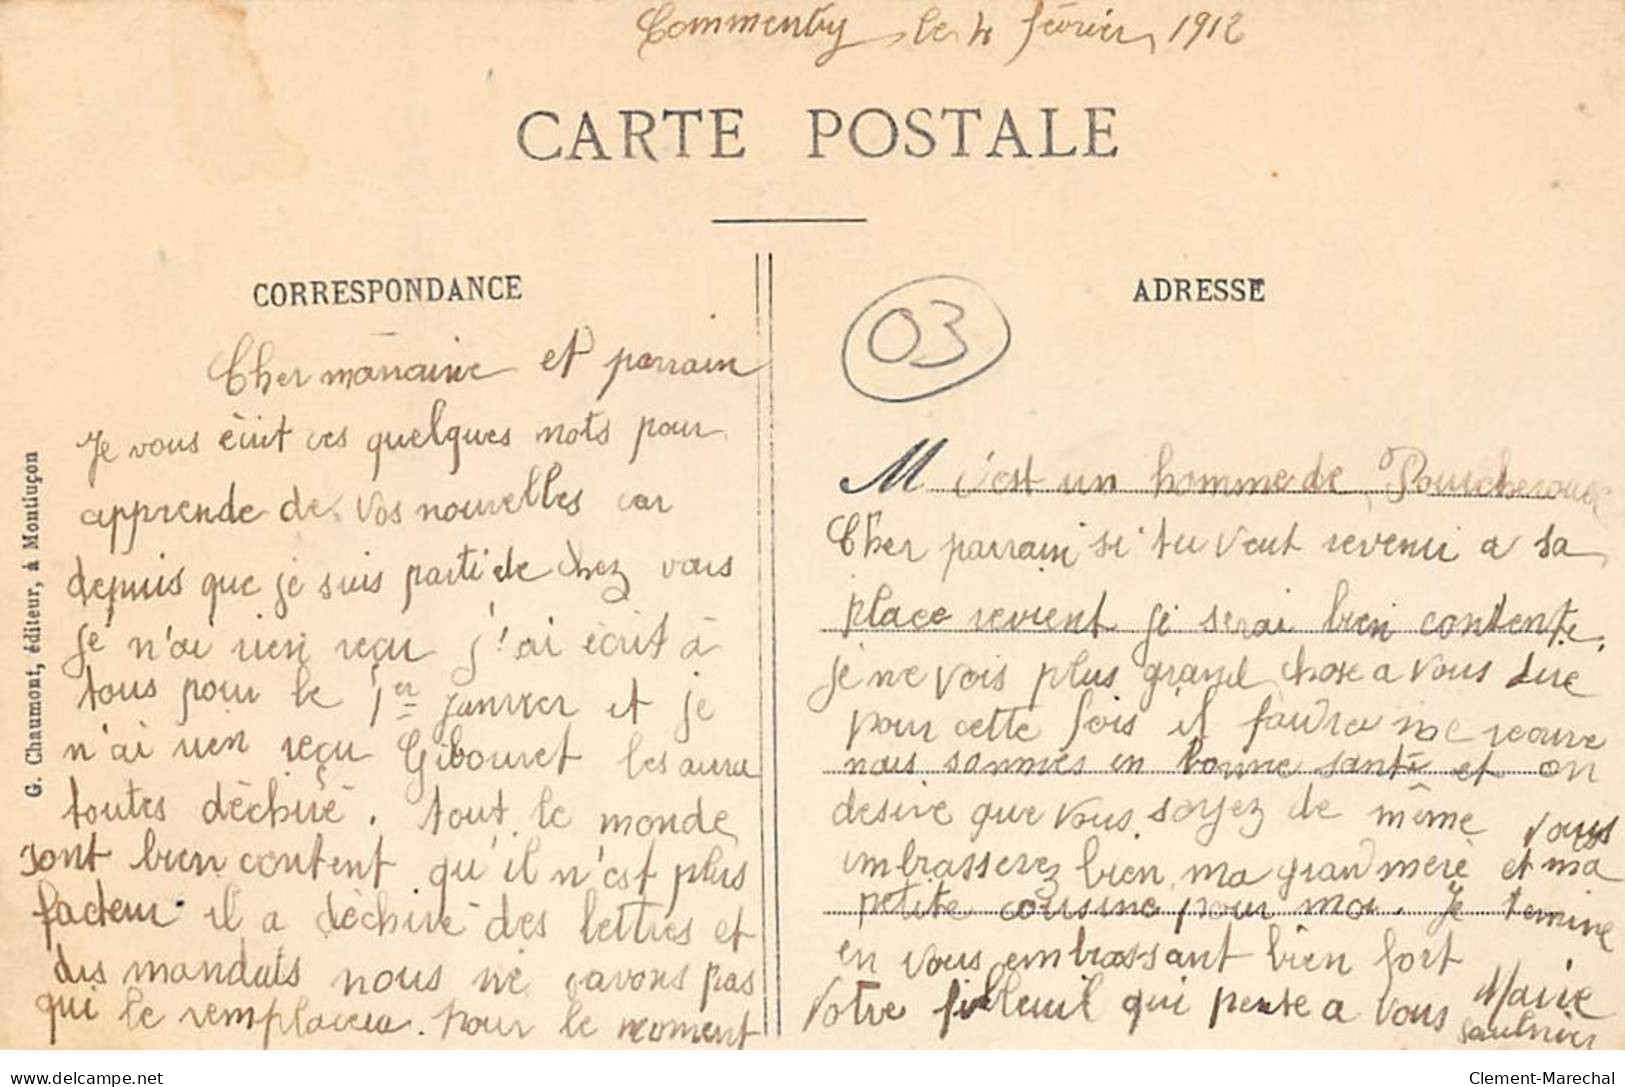 Commentry le 4 février 1912
CARTE POSTALE
CORRESPONDANCE
Cher marraine et parrain
Je vous écrit ces quelques mots pour
apprende de vos nouvelles car
depuis que je suis parti de chez vous
je n'ai rien reçu j'ai écrit à
tous pour le 1er janvier et je
n'ai rien reçu Gibouret les aura
toutes déchiré. tout le monde
sont bien content qu'il n'est plus
facteur il a déchiré des lettres et
des mandats nous ne savons pas
qui le remplacera. Pour le moment
G. Chaumont, éditeur, à Montluçon
ADRESSE
03
M c'est un homme de
Cher parrain si tu veut revenir a sa
place revient je serai bien contente.
je ne vois plus grand chose a vous dire
pour cette fois il faudra me
nous sommes en bonne santé et on
desire que vous soyez de même vous
embrasserez bien ma grand mère et ma
petite cousine pour moi. Je termine
en vous embrassant bien fort
Votre filleuil qui pense a vous Marie
Saulnier
delcampe.net
Clement-Marechal